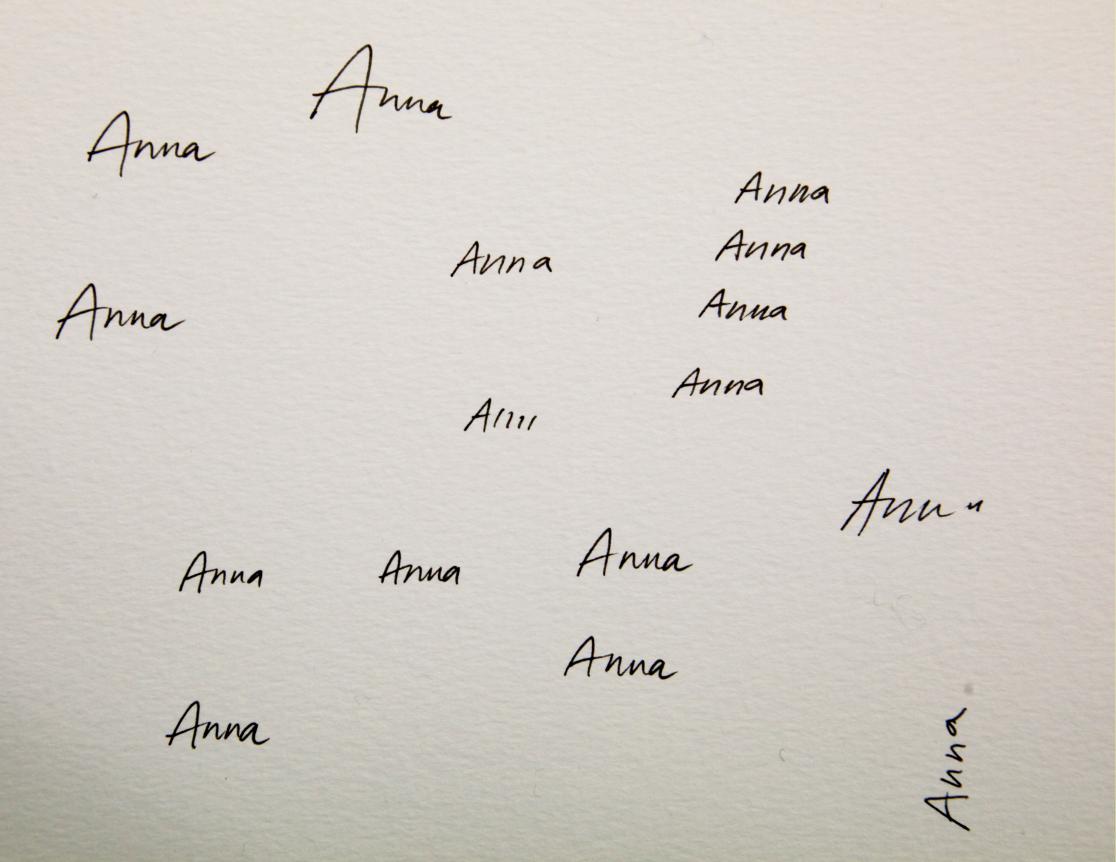 Anna
Anna
Anna
Anna
Anna
Anna
Anna
Anna
Anna
Anna
Anna
Anna
Anna
Anna